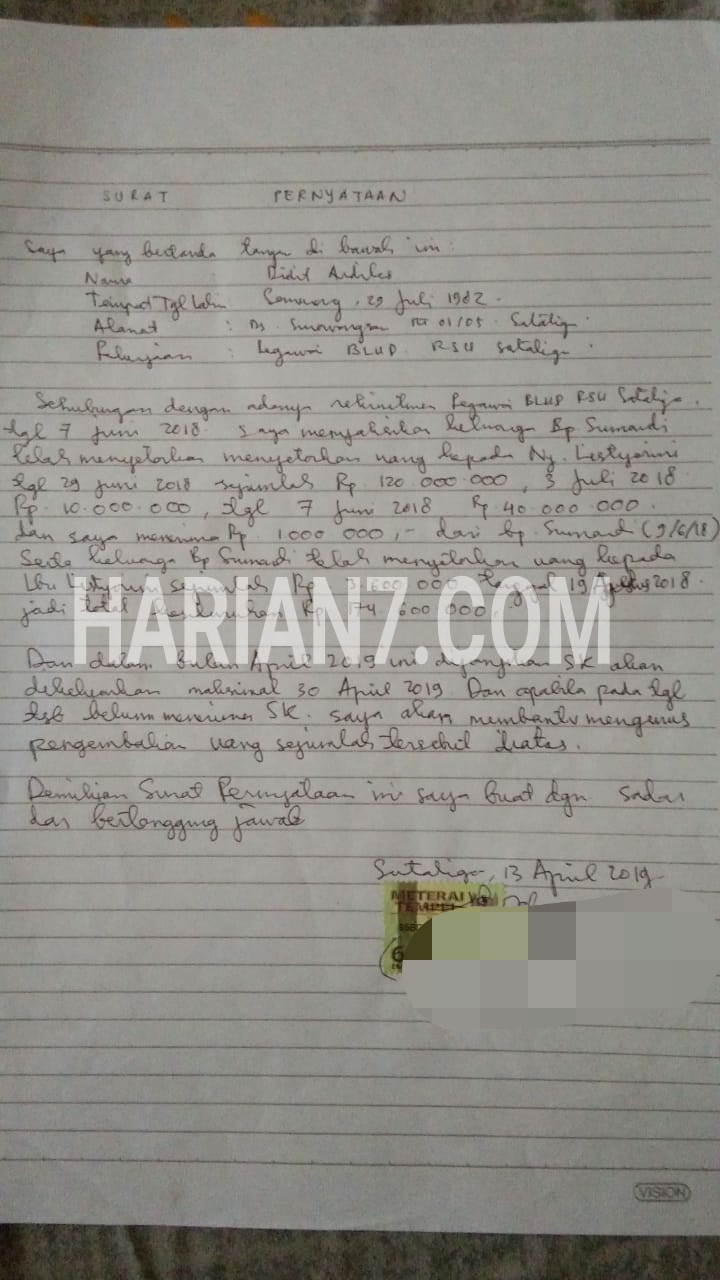 SURAT PERNYATAAN
Saya yang bertanda tangan di bawah ini :
Nama : Didit
Tempat Tgl Lahir Semarang, 29 Juli 1982.
Alamat : Ds. RT 01/05. Salatiga
Pekerjaan : Pegawai BLUD RSU Salatiga.
Sehubungan dengan adanya rekruitmen Pegawai BLUD RSU Salatiga.
tgl 7 Juni 2018. saya menyaksikan keluarga Bp Sumardi
telah menyetorkan menyetorkan uang kepada Ny. Listyorini
tgl 29 juni 2018 sejumlah Rp. 120.000.000, 3 Juli 2018
Rp. 10.000.000, tgl 7 Juni 2018 Rp. 40.000.000.
dan saya menerima Rp. 1000 000,- dari bp. Sumardi (9/6/18)
Serta keluarga Bp Sumardi telah menyetorkan uang kepada
Ibu Listyorini sejumlah Rp 3.600 000 tanggal 19 2018.
jadi total Rp. 174.600 000,
HARIAN7.COM
Dan dalam bulan April 2019 ini dijanjikan SK akan
dikeluarkan maksimal 30 April 2019. Dan apabila pada tgl
tsb belum menerima SK. saya akan membantu mengurus
pengembalian uang sejumlah tersebut diatas.
Demikian Surat Pernyataan ini saya buat dgn sadar
dan bertanggung jawab
Salatiga, 13 April 2019
METERAI
TEMPEL
6
VISION